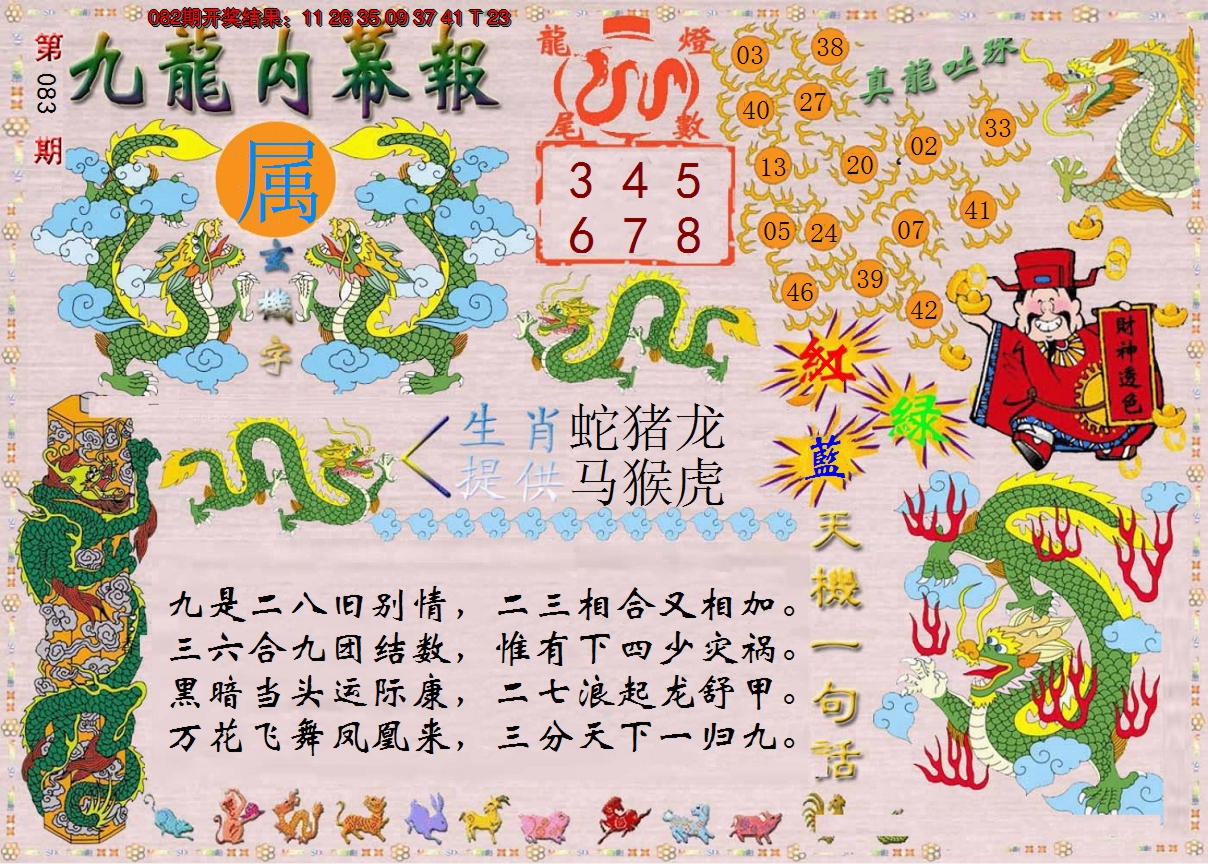 082期开奖结果：11 26 35 09 37 41 T 23
第083期
九龍内幕報
属
玄機字
龍燈
尾數
3 4 5
6 7 8
真龍吐珠
03 38
40 27
13 20 02 33
05 24 07 41
46 39 42
財神透色
紅
綠
藍
生肖 蛇猪龙
提供 马猴虎
天機一句話
九是二八旧别情，二三相合又相加。
三六合九团结数，惟有下四少灾祸。
黑暗当头运际康，二七浪起龙舒甲。
万花飞舞凤凰来，三分天下一归九。